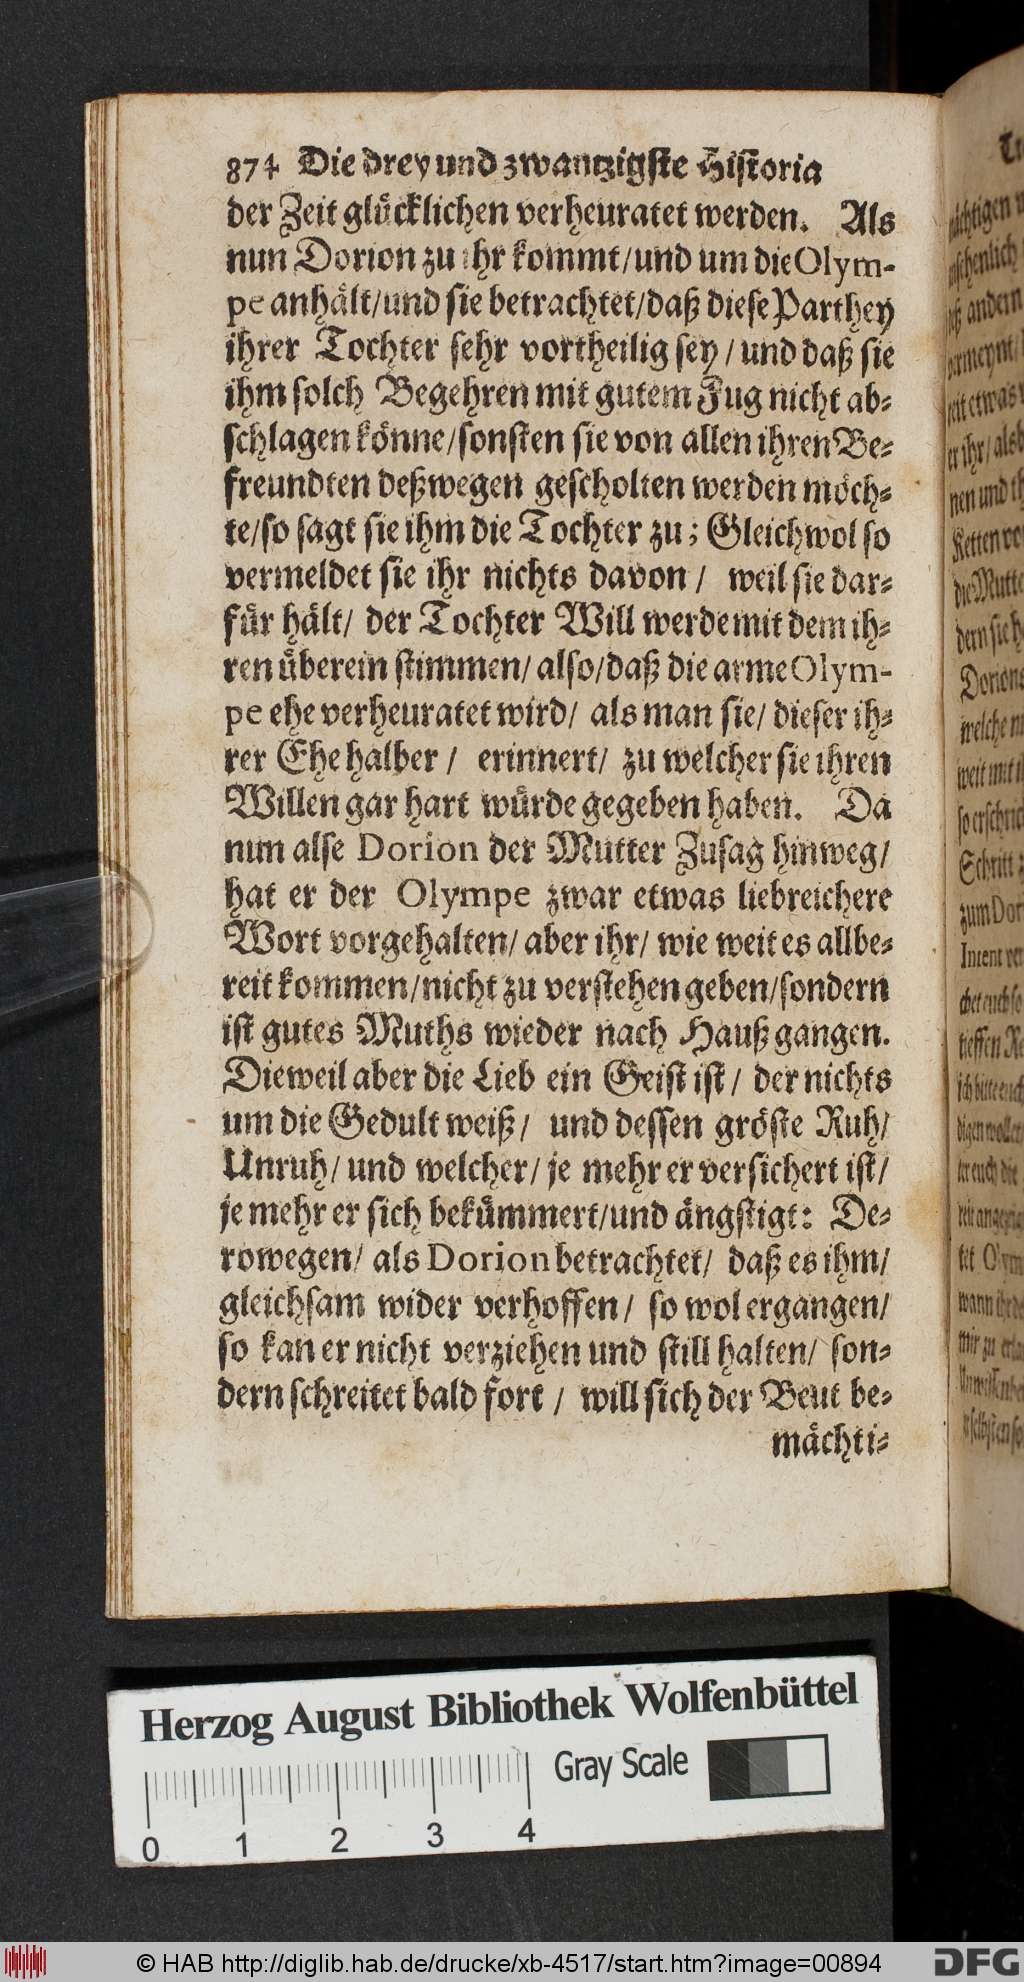 874 Die drey und zwantzigste Historia
der Zeit glücklichen verheuratet werden. Als
nun Dorion zu ihr kommt/und um die Olym-
pe anhält/und sie betrachtet/daß diese Parthey
ihrer Tochter sehr vortheilig sey/und daß sie
ihm solch Begehren mit gutem Fug nicht ab-
schlagen könne/sonsten sie von allen ihren Be-
freundten deßwegen gescholten werden möch-
te/so sagt sie ihm die Tochter zu; Gleichwol so
vermeldet sie ihr nichts davon/ weil sie dar-
für hält/ der Tochter Will werde mit dem ih-
ren überein stimmen/ also/daß die arme Olym-
pe ehe verheuratet wird/ als man sie/ dieser ih-
rer Ehe halber/ erinnert/ zu welcher sie ihren
Willen gar hart würde gegeben haben. Da
nun alse Dorion der Mutter Zusag hinweg/
hat er der Olympe zwar etwas liebreichere
Wort vorgehalten/ aber ihr/ wie weit es allbe-
reit kommen/nicht zu verstehen geben/sondern
ist gutes Muths wieder nach Hauß gangen.
Dieweil aber die Lieb ein Geist ist/ der nichts
um die Gedult weiß/ und dessen gröste Ruh/
Unruh/ und welcher/ je mehr er versichert ist/
je mehr er sich bekümmert/und ängstigt: De-
rowegen/ als Dorion betrachtet/ daß es ihm/
gleichsam wider verhoffen/ so wol ergangen/
so kan er nicht verziehen und still halten/ son-
dern schreitet bald fort/ will sich der Beut be-
mächti-
Herzog August Bibliothek Wolfenbüttel
Gray Scale
0 1 2 3 4
© HAB http://diglib.hab.de/drucke/xb-4517/start.htm?image=00894
DFG